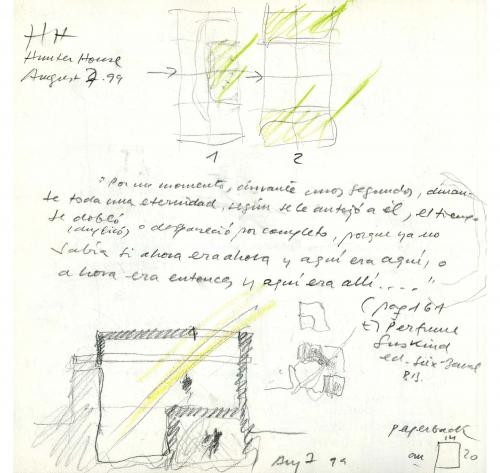 HH
Hunter House
August 7.99
1
2
"Por un momento, durante unos segundos, duran-
te toda una eternidad, según se le antojó a él, el tiempo
se dobló
(duplicó) o desapareció por completo, porque ya no
sabía si ahora era ahora y aquí era aquí, o
ahora era entonces y aquí era allí ....."
(pag 161
El Perfume
Suskind
ed. Seix-Barral
paperback
20
Aug 7 99